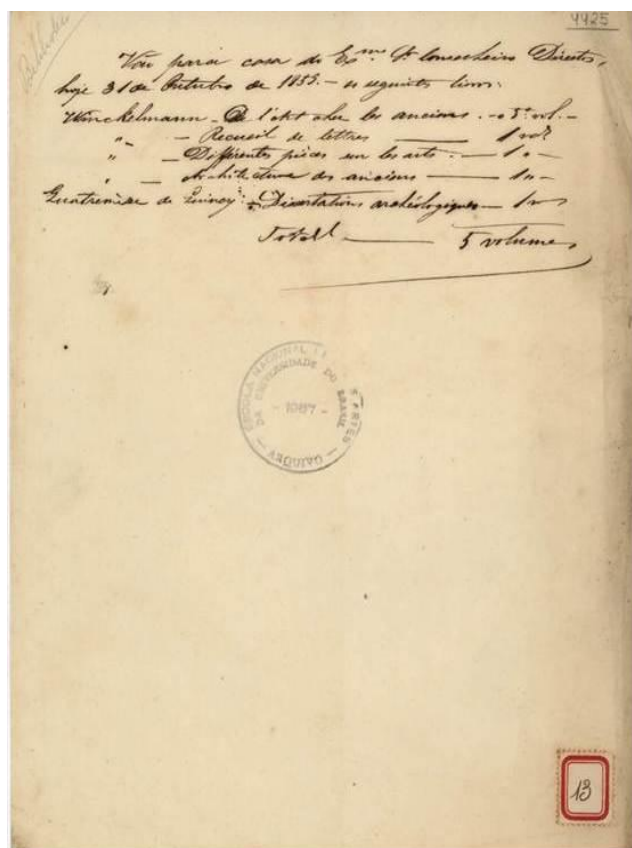 4425
Vai para casa do Ex.mo Sr. Conselheiro Director,
hoje 31 de Outubro de 18 – os seguintes livros:
Winckelmann – De l'Art chez les anciens. – vol. –
" – Recueil de lettres — 1 vol
" – Différentes pièces sur les arts. — 1 " –
" – Architecture des anciens — 1 " –
Quatremère de Quincy: – Dissertations archéologiques – 1
Total — 5 volumes
ESCOLA NACIONAL ARTES
DA UNIVERSIDADE DO BRASIL
- 1957 -
- ARQUIVO -
13